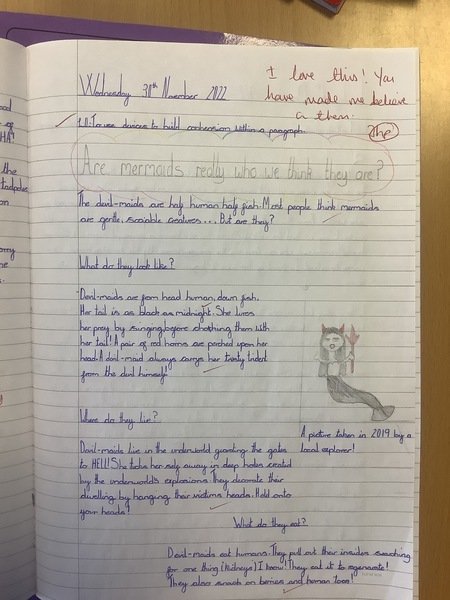 Wednesday 30th November 2022
I love this! You
have made me believe
in them.
1HP
L.O. To use devices to build cohesion within a paragraph.
Are mermaids really who we think they are?
The devil-maids are half human half fish. Most people think mermaids
are gentle, sociable creatures... But are they?
What do they look like?
Devil-maids are from head human, down fish.
Her tail is as black as midnight. She lures
her prey by singing, before chothing them with
her tail! A pair of red horns are perched upon her
head. A devil-maid always carrys her trusty trident
from the devil himself!
Where do they live?
A picture taken in 2019 by a
local explorer!
Devil-maids live in the underworld guarding the gates
to HELL! She tucks her-self away in deep holes created
by the underworld's explosions. They decorate their
dwelling by hanging their victims heads. Hold onto
your heads!
What do they eat?
Devil-maids eat humans. They pull out their insides searching
for one thing (kidneys) I know! They eat it to regenerate!
They also snack on berries and human toes!
HA!
the
tadpoles